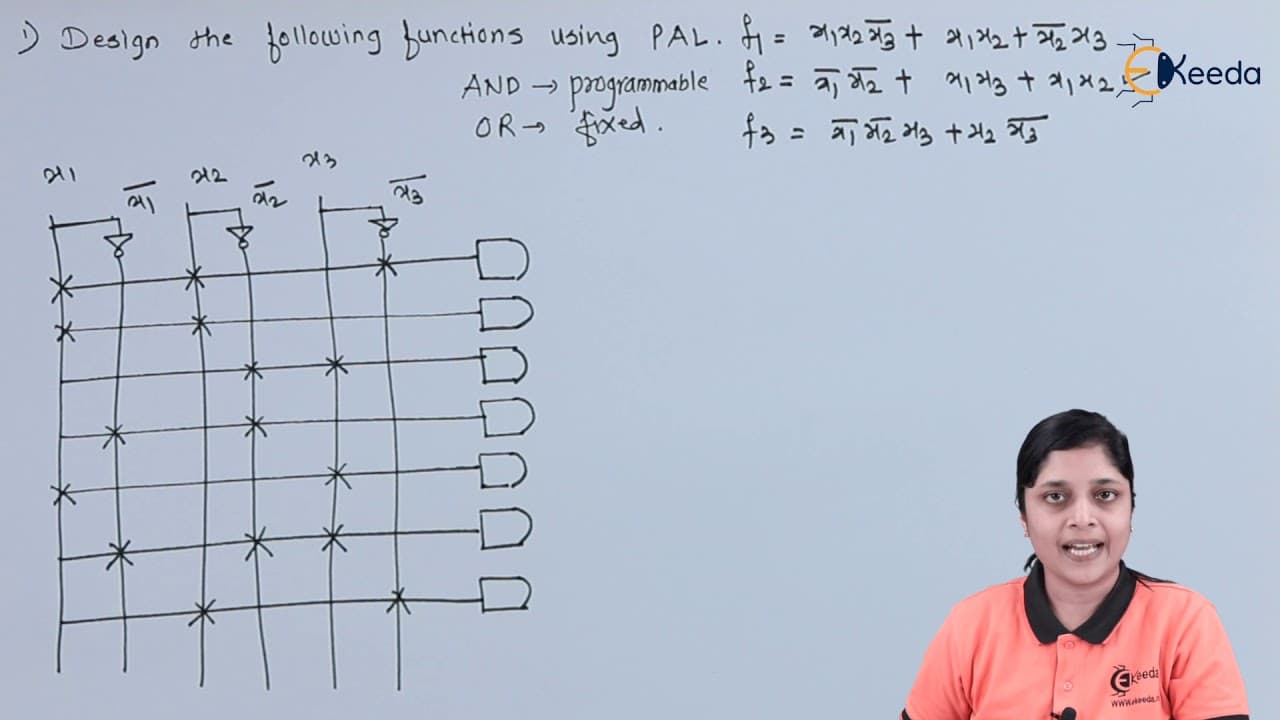 1) Design the following functions using PAL. f1 = x1x2x̅3 + x1x2 + x̅2x3
AND → programmable f2 = x̅1 x̅2 + x1x3 + x1x2
OR → fixed. f3 = x̅1 x̅2 x3 + x2 x̅3
EKeeda
x1 x̅1 x2 x̅2 x3 x̅3
EKeeda